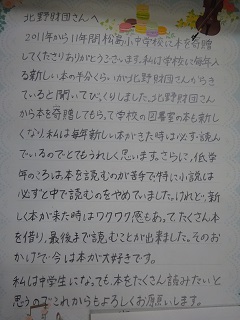 北野財団さんへ
2011年から11年間松島小中学校に本を寄贈
してくださりありがとうございます。私は学校に毎年入
る新しい本の半分くらいが北野財団さんからき
ていると聞いてびっくりしました。北野財団さん
から本を寄贈してもらって学校の図書室の本も新し
くなり私は毎年新しい本がきた時は必ず読ん
でいるのでとてもうれしく思います。さらに、低学
年のころは、本を読むのが苦手で特に小説は
必ずと中で読むのをやめていました。けれど、新
しく本が来た時はワクワク感もあってたくさん本
を借り、最後まで読むことが出来ました。そのお
かげで今は本が大好きです。
私は中学生になっても、本をたくさん読みたいと
思うのでこれからもよろしくお願いします。